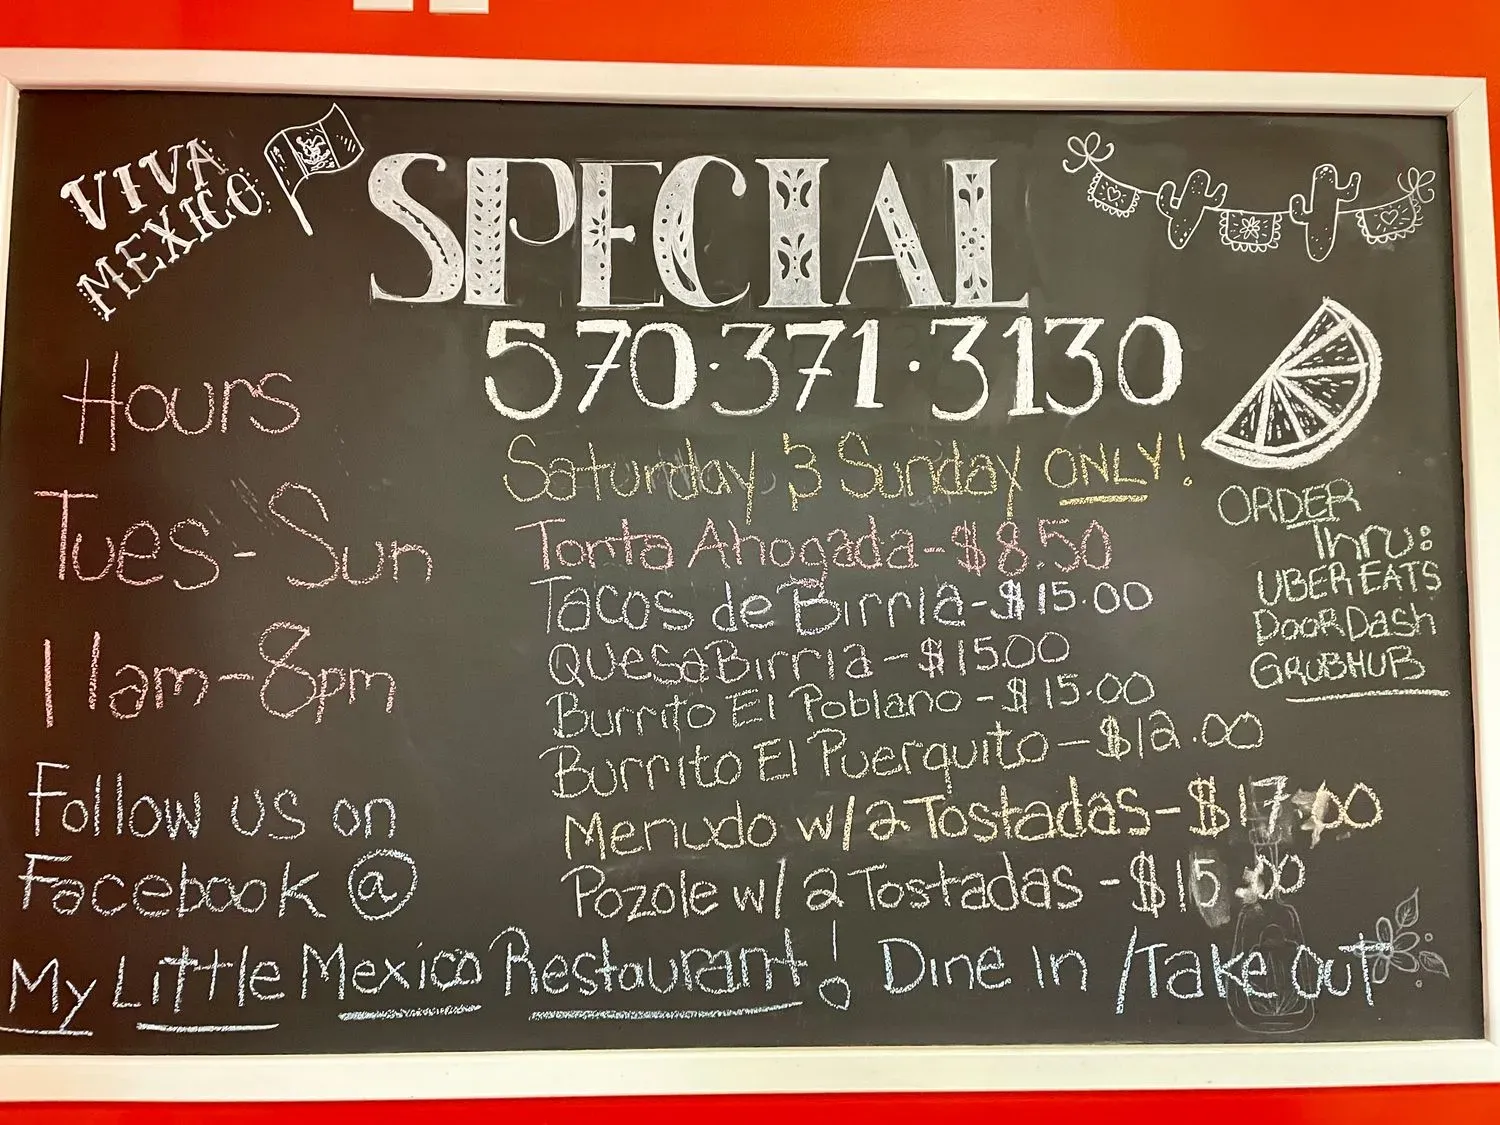 VIVA
MEXICO
SPECIAL
570·371·3130
Hours
Tues-Sun
11am-8pm
Follow us on
Facebook @
My Little Mexico Restaurant! Dine In /Take Out
Saturday & Sunday ONLY!
Torta Ahogada-$8.50
Tacos de Birria-$15.00
QuesaBirria-$15.00
Burrito El Poblano-$15.00
Burrito El Puerquito-$12.00
Menudo w/2 Tostadas-$17.00
Pozole w/2 Tostadas-$15.00
ORDER
Thru:
UBER EATS
DOORDash
GRUBHUB